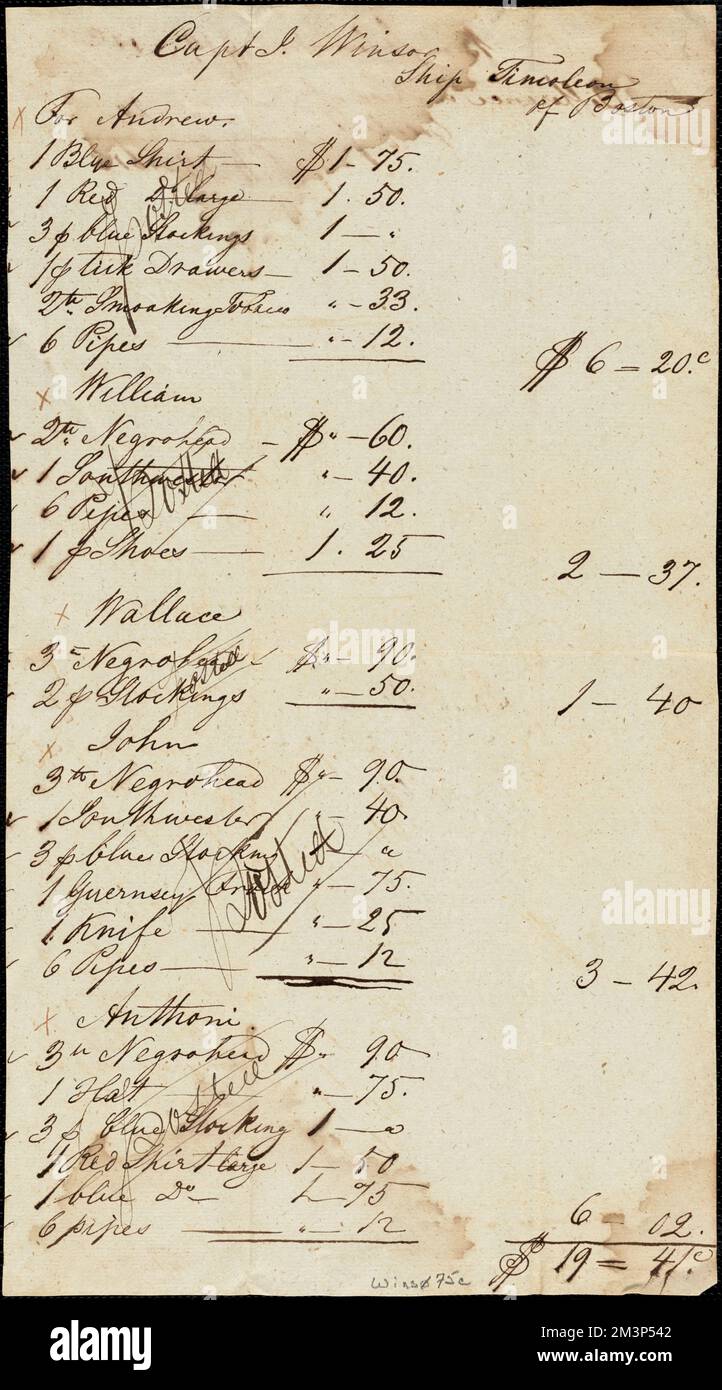 Capt J. Winsor
Ship Timoleon
of Boston
x For Andrew.
1 Blye Shirt — $1 - 75.
1 Red Do large — 1. 50.
3 p blue Stockings 1 — "
1 p tick Drawers — 1 - 50.
2 lb Smoaking Tobaco " - 33.
6 Pipes — " - 12.
$ 6 = 20.c
Posted
x William
2 lb Negrohead - $ " - 60.
1 Southwester " - 40.
6 Pipes — " 12.
1 p Shoes — 1. 25
2 — 37.
Posted
x Wallace
3 " Negrohead - $ " - 90.
2 p Stockings " - 50.
1 - 40
Posted
x John
3 lb Negrohead $ " - 90.
1 Southwester 40.
3 p blue Stockins "
1 Guernsey Frock " - 75.
1. Knife — " - 25
6 Pipes — " - 12
3 - 42.
Posted
x Anthoni.
3 " Negrohead $ " 90
1 Hat " - 75.
3 p blue Stocking 1 — "
1 Red Shirt large 1 - 50
1 blue Do - 1 - 75
6 pipes " - 12
6 - 02.
$ 19 = 41.c
Posted
Wins 75c
alamy
alamy
alamy
alamy
a
Image ID: 2M3P542
www.alamy.com